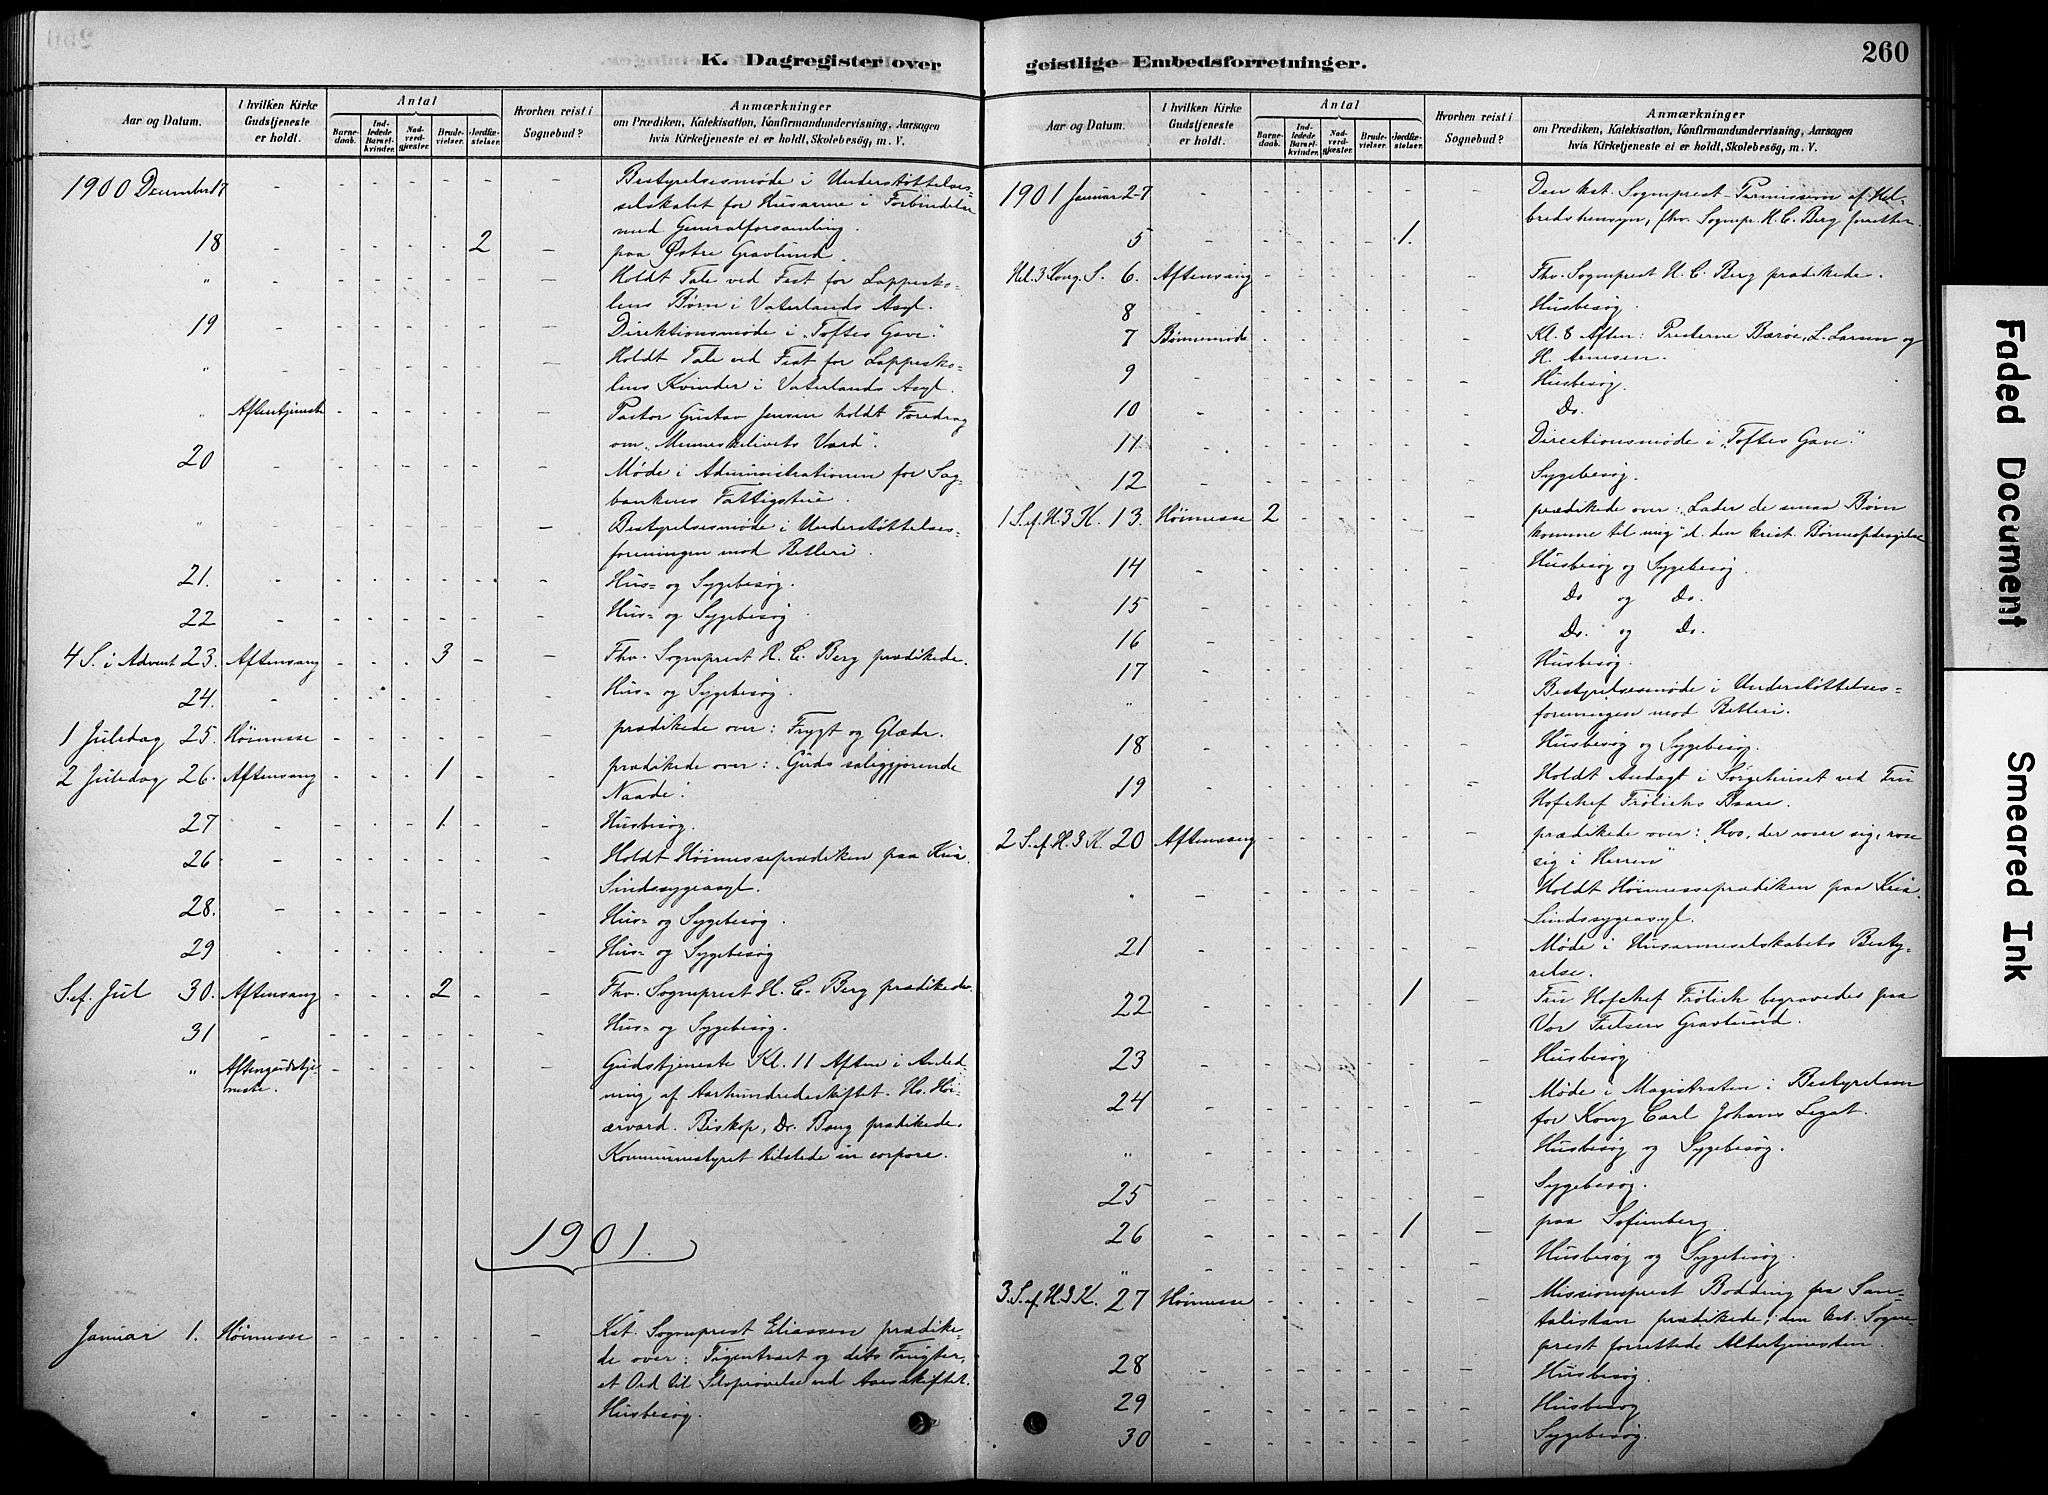 K. Dagregister over
Aar og Datum.
I hvilken Kirke Gudstjeneste er holdt.
Antal
Barnedaab.
Indledede Barselkvinder.
Nadverdgjester.
Brudevielser.
Jordfæstelser.
Hvorhen reist i Sognebud?
Anmærkninger
om Prædiken, Katekisation, Konfirmandundervisning, Aarsagen
hvis Kirketjeneste ei er holdt, Skolebesög, m. V.
1900 December 17 - - - - - - - Bestyrelsesmøde i Understøttelses-
selskabet for Husarme i Forbindelse
med Generalforsamling.
18 - - - - - 2 - paa Østre Gravlund.
" - - - - - - - Holdt Tale ved Fest for Lappesko-
lens Børn i Vaterlands Asyl.
19 - - - - - - - Direktionsmøde i "Toftes Gave".
" - - - - - - - Holdt Tale ved Fest for Lappesko-
lens Kvinder i Vaterlands Asyl.
" Aftentjeneste - - - - - - Pastor Gustav Jensen holdt Foredrag
om "Menneskelivets Værd".
20 - - - - - - - Møde i Administrationen for Sag-
bankens Fattigstue.
" - - - - - - - Bestyrelsesmøde i Understøttelses-
foreningen mod Betleri.
21. - - - - - - - Hus- og Sygebesøg.
22 - - - - - - - Hus- og Sygebesøg
4 S. i Advent 23. Aftensang - - - 3 - - Fhv. Sogneprest H. C. Berg prædikede.
24. - - - - - - - Hus- og Sygebesøg.
1 Juledag 25. Høimesse - - - - - - prædikede over: Frygt og Glæde.
2 Juledag 26. Aftensang - - - 1 - - prædikede over: "Guds saliggjørende
Naade".
27 - - - - 1. - - Husbesøg.
26 - - - - - - - Holdt Høimesseprædiken paa Kria
Sindssygeasyl.
28. - - - - - - - Hus- og Sygebesøg.
29 - - - - - - - Hus- og Sygebesøg
S. ef. Jul 30. Aftensang - - - 2 - - Fhv. Sogneprest H. C. Berg prædikede.
31 - - - - - - - Hus- og Sygebesøg.
" Aftengudstje-
neste. - - - - - - Gudstjeneste Kl. 11 Aften i Anled-
ning af Aarhundredeskiftet. Hs. Høi-
ærværd. Biskop, Dr. Bang prædikede.
Kommunestyret tilstede in corpore.
1901.
Januar 1. Høimesse - - - - - - Kst. Sogneprest Eliassen prædike-
de over: Figentræet og dets Frugter,
et Ord til Selvprøvelse ved Aarsskiftet.
" - - - - - - - Husbesøg.
geistlige Embedsforretninger.
260
Aar og Datum.
I hvilken Kirke Gudstjeneste er holdt.
Antal
Barnedaab.
Indledede Barselkvinder.
Nadverdgjester.
Brudevielser.
Jordfæstelser.
Hvorhen reist i Sognebud?
Anmærkninger
om Prædiken, Katekisation, Konfirmandundervisning, Aarsagen
hvis Kirketjeneste ei er holdt, Skolebesög, m. V.
1901 Januar 2-7 - - - - - - - Den kst. Sogneprest Permission af Hel-
bredshensyn, fhv. Sognep. H. C. Berg forretter.
5 - - - - - 1. -
Hel. 3 Kong. S. 6. Aftensang - - - - - - Fhv. Sogneprest H. C. Berg prædikede.
8 - - - - - - - Husbesøg.
7 Bønnemøde - - - - - - Kl. 8 Aften: Presterne Bærøe, L. Larsen og
H. Arnesen.
9 - - - - - - - Husbesøg.
10 - - - - - - - Do.
11 - - - - - - - Directionsmøde i "Toftes Gave".
12 - - - - - - - Sygebesøg.
1 S. ef. H. 3 K. 13. Høimesse 2 - - - - - prædikede over: "Lader de smaa Børn
komme til mig" ɔ: den krist. Børneopdragelse
14 - - - - - - - Husbesøg og Sygebesøg.
15 - - - - - - - Do og Do.
16 - - - - - - - Do. og Do.
17 - - - - - - - Husbesøg.
" - - - - - - - Bestyrelsesmøde i Understøttelses-
foreningen mod Betleri.
18 - - - - - - - Husbesøg og Sygebesøg.
19 - - - - - - - Holdt Andagt i Sørgehuset ved Fru
Hofchef Frølichs Baare.
2 S. ef. H. 3 K. 20 Aftensang - - - - - - prædikede over: "Hvo, der roser sig, rose
sig i Herren"
" - - - - - - - Holdt Høimesseprædiken paa Kria
Sindssygeasyl.
21 - - - - - - - Møde i Husarmeselskabets Besty-
relse.
22 - - - - - 1 - Fru Hofchef Frølich begravedes paa
Vor Frelsers Gravlund.
23 - - - - - - - Husbesøg
24 - - - - - - - Møde i Magistraten i Bestyrelsen
for Kong Carl Johans Legat.
" - - - - - - - Husbesøg og Sygebesøg.
25 - - - - - - - Sygebesøg.
26 - - - - - 1 - paa Sofienberg.
" - - - - - - - Husbesøg og Sygebesøg.
3. S. ef. H. 3 K. 27 Høimesse - - - - - - Missionsprest Bodding fra San-
talistan prædikede; den kst. Sogne-
prest forrettede Altertjenesten.
28 - - - - - - - Husbesøg.
29 - - - - - - - Husbesøg
30 - - - - - - - Sygebesøg.
Faded Document
Smeared Ink